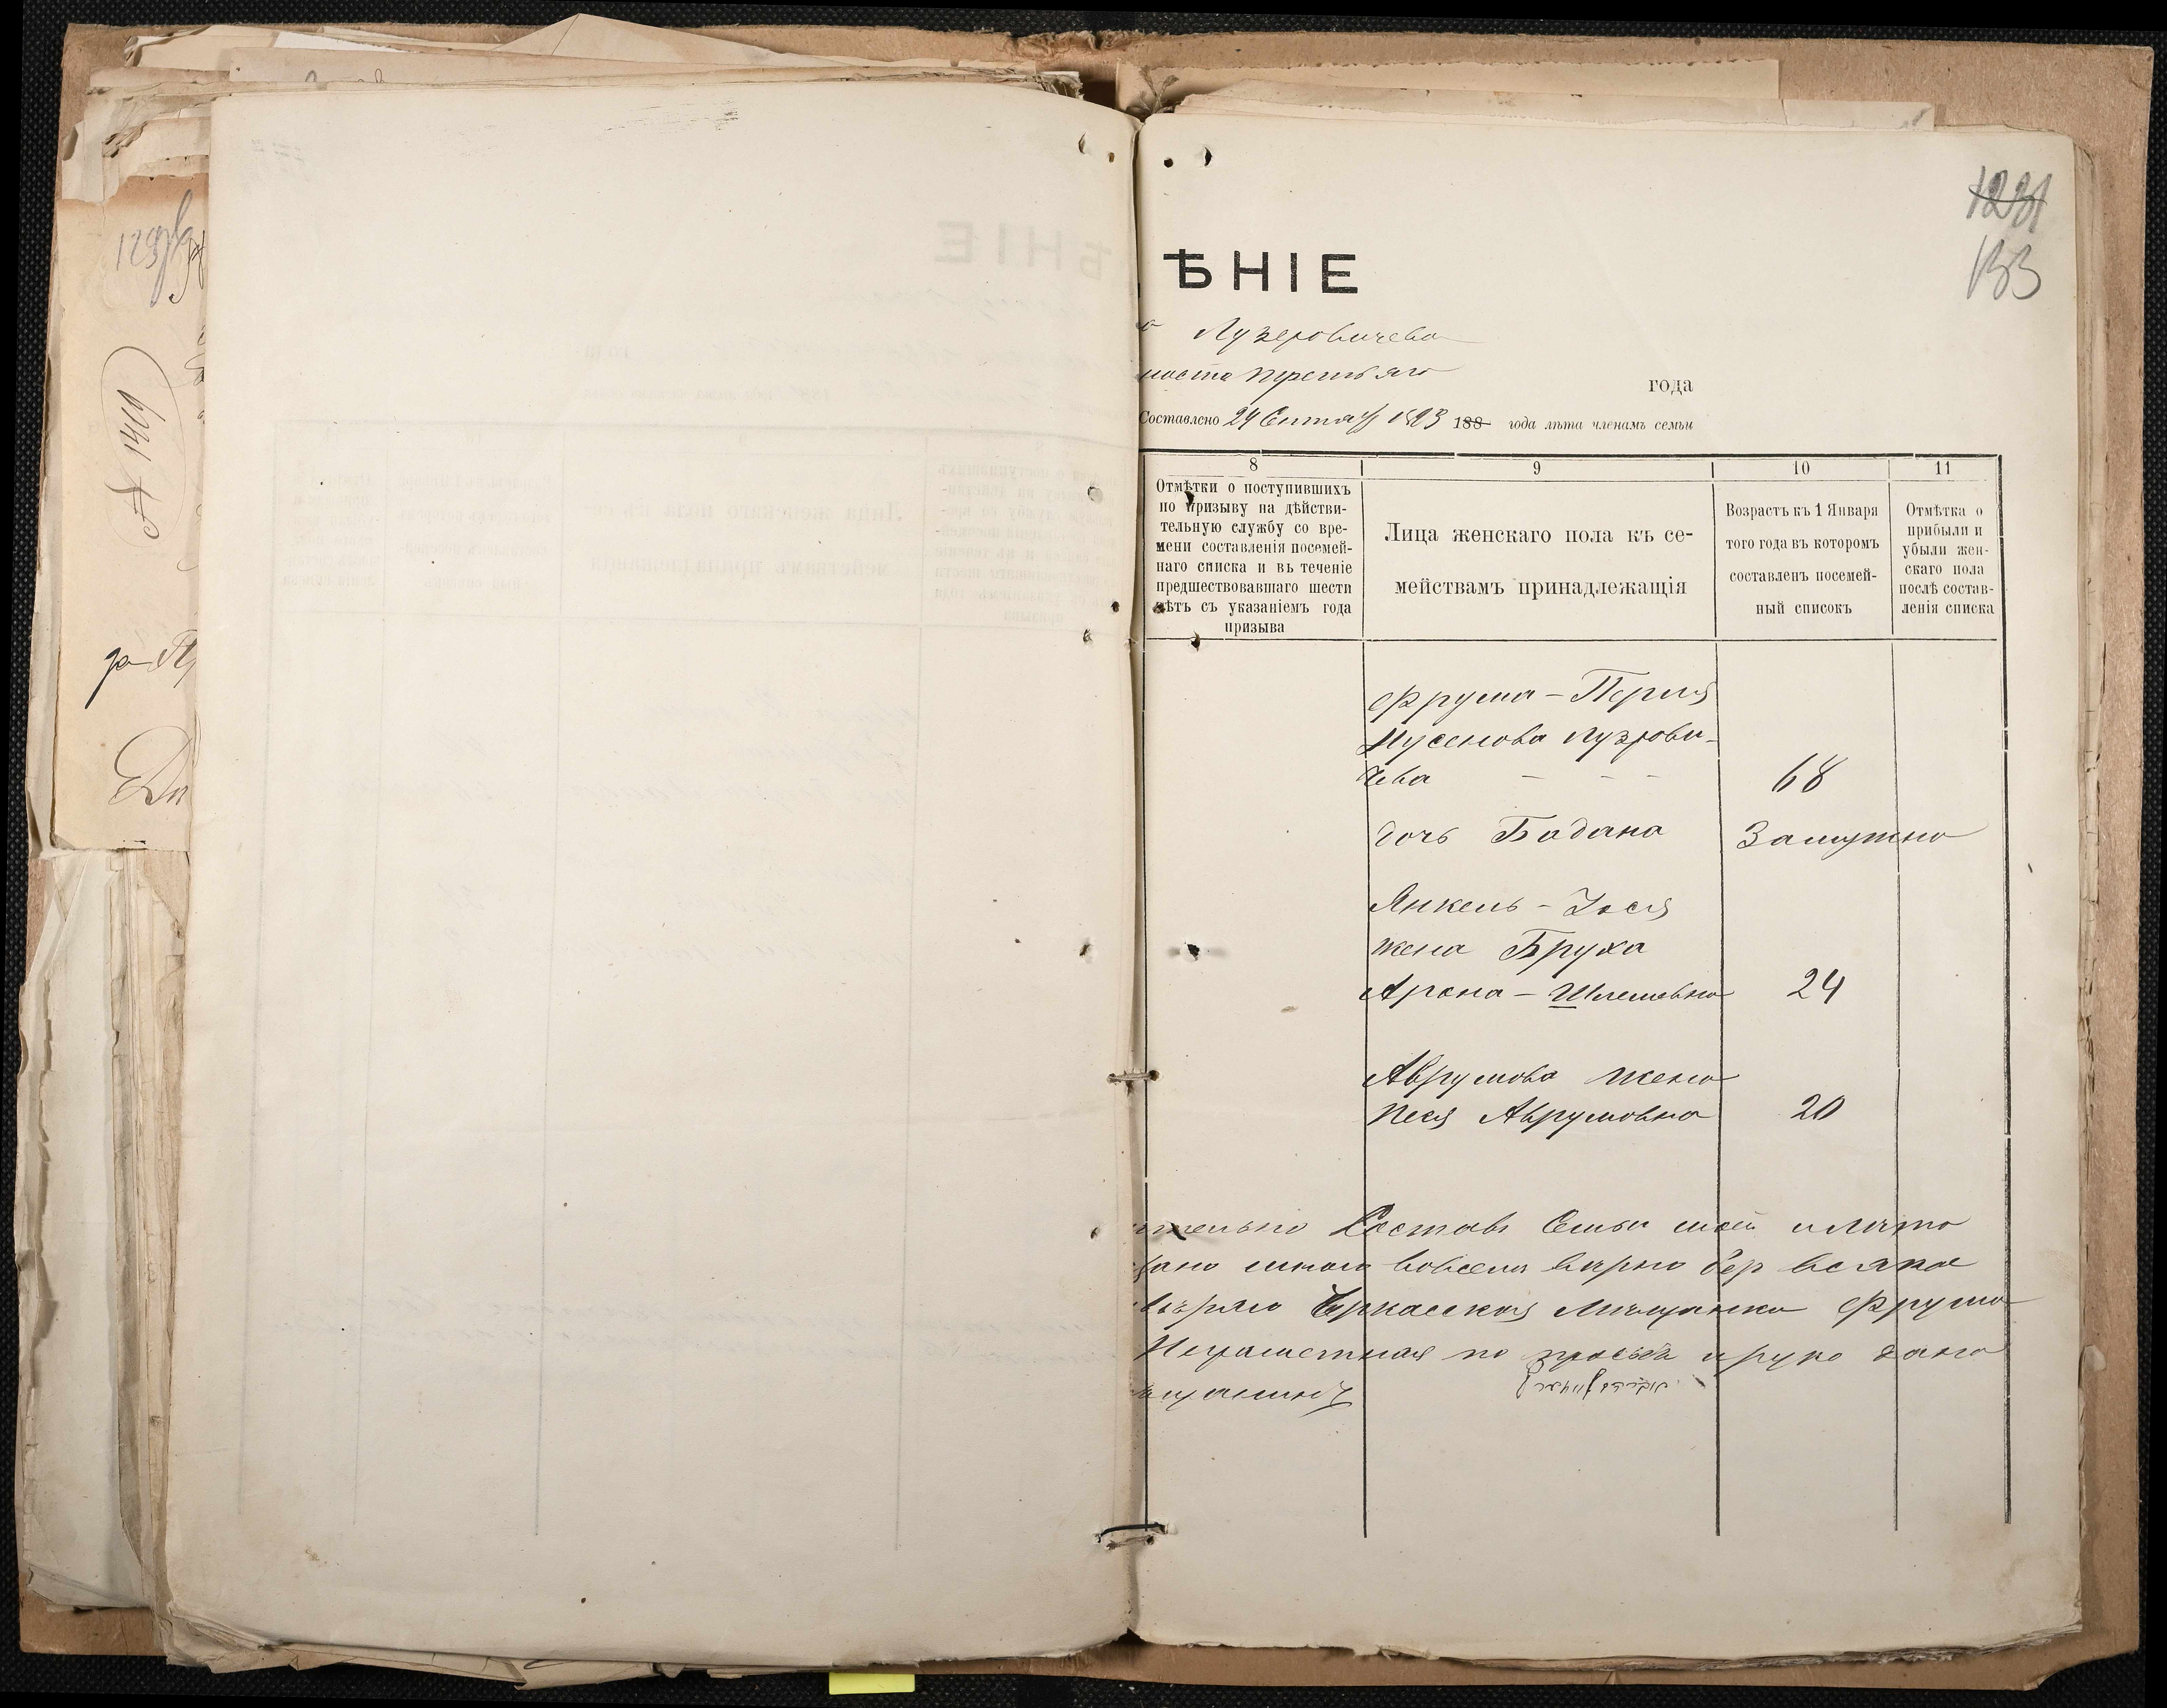 1231
133
ѢНІЕ
Лузеровичева
носта третьяго
года
Составлено 24 Сентяб 1893 188 года лѣта членамъ семьи
8
Отмѣтки о поступившихъ
по призыву на дѣйстви-
тельную службу со вре-
мени составленія посемей-
наго списка и въ теченіе
предшествовавшаго шести
лѣтъ съ указаніемъ года
призыва
9
Лица женскаго пола къ се-
мействамъ принадлежащія
10
Возрастъ къ 1 Января
того года въ которомъ
составленъ посемей-
ный списокъ
11
Отмѣтка о
прибыли и
убыли жен-
скаго пола
послѣ состав-
ленія списка
Фрума - Перля
Нусенова Лузрови-
чева - - - 68
дочь Бадана Замужно
Янкель - Іося
жена Бруха
Арона - Шлемовна 24
Аврумова жена
Песя Аврумовна 20
ительно Составъ Семьи моей и лѣта
мною вовсемъ вѣрно без всякое
Черкасская Мѣщанка Фрума
Неграмотная по просьбѣ и руко дана
ѣщанинъ
А 1419
да